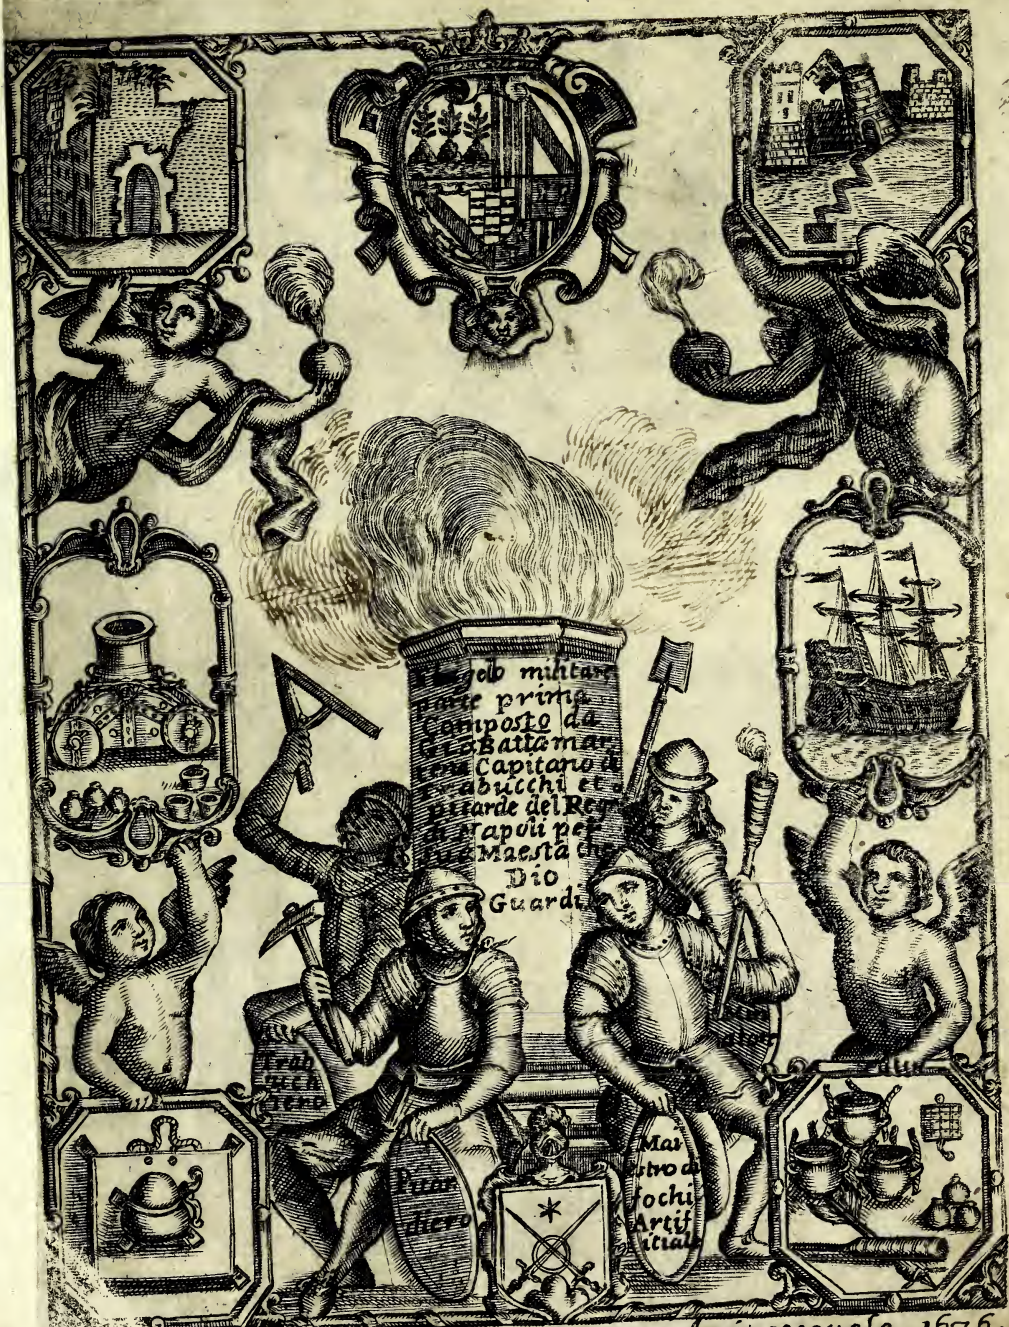 Flagello militare
parte prima
Composto da
Gio Batta mar
tena Capitano di
trabucchi et
pitarde del Regº
di Napoli per
sua Maestà che
Dio
Guardi
Trab
uch
iero
Pitar
diero
Mai
stro di
fochi
Artif
itiale
1676